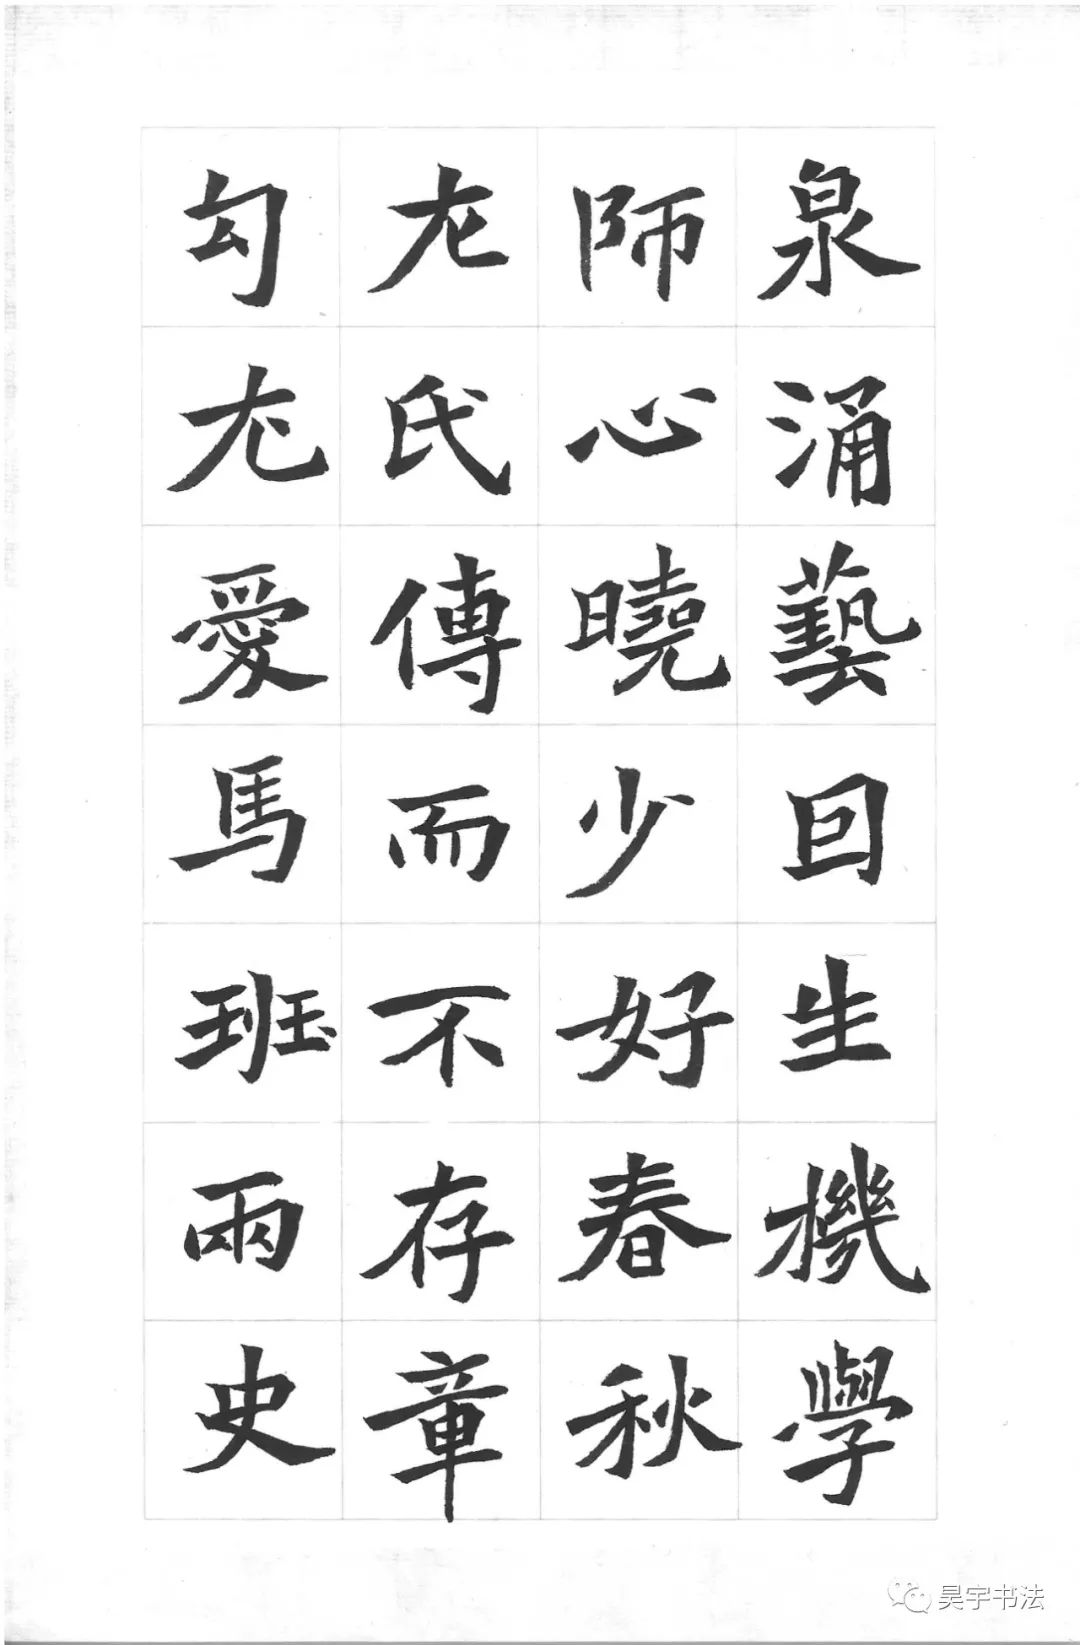 泉涌藝囙生機學
師心曉少好春秋
左氏傳而不存章
勾尤愛馬班兩史
昊宇书法